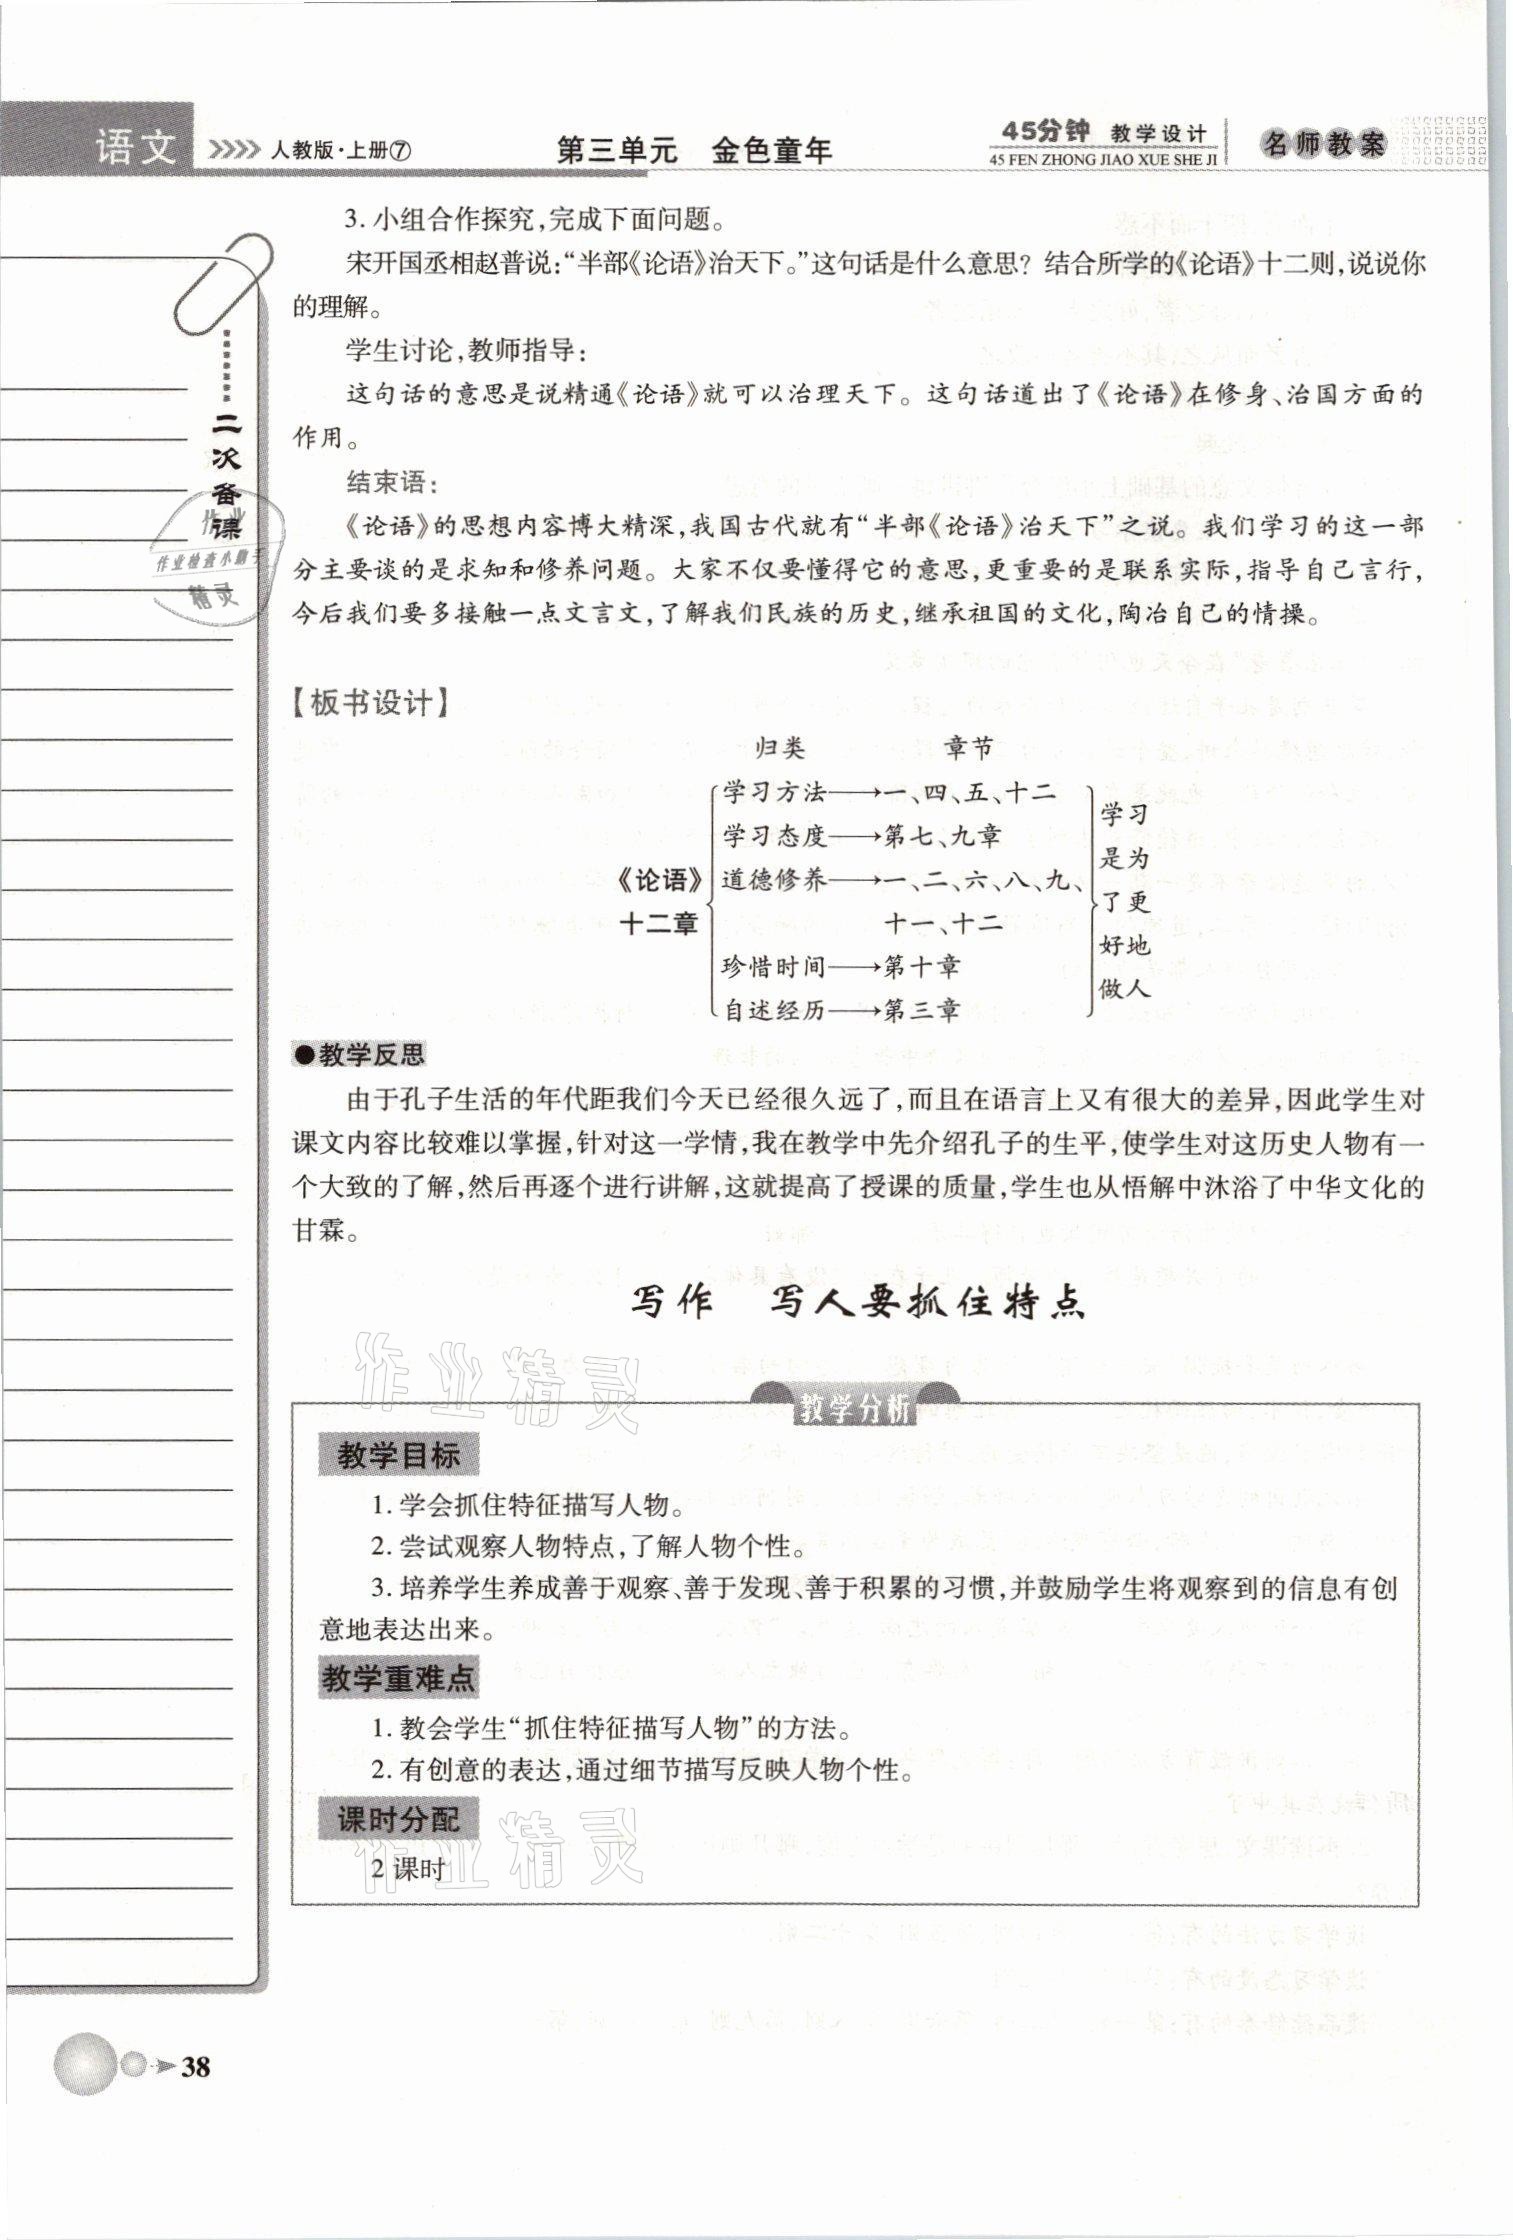 语文 人教版·上册⑦ 第三单元 金色童年 45分钟 教学设计 名师教案
45 FEN ZHONG JIAO XUE SHE JI
3. 小组合作探究,完成下面问题。
宋开国丞相赵普说:“半部《论语》治天下。”这句话是什么意思? 结合所学的《论语》十二则,说说你
的理解。
学生讨论,教师指导:
这句话的意思是说精通《论语》就可以治理天下。这句话道出了《论语》在修身、治国方面的
作用。
结束语:
《论语》的思想内容博大精深,我国古代就有“半部《论语》治天下”之说。我们学习的这一部
分主要谈的是求知和修养问题。大家不仅要懂得它的意思,更重要的是联系实际,指导自己言行,
今后我们要多接触一点文言文,了解我们民族的历史,继承祖国的文化,陶冶自己的情操。
二次备课
作业
作业检查小助手
精灵
【板书设计】
归类 章节
《论语》
十二章
学习方法→一、四、五、十二
学习态度→第七、九章
道德修养→一、二、六、八、九、
十一、十二
珍惜时间→第十章
自述经历→第三章
学习
是为
了更
好地
做人
●教学反思
由于孔子生活的年代距我们今天已经很久远了,而且在语言上又有很大的差异,因此学生对
课文内容比较难以掌握,针对这一学情,我在教学中先介绍孔子的生平,使学生对这历史人物有一
个大致的了解,然后再逐个进行讲解,这就提高了授课的质量,学生也从悟解中沐浴了中华文化的
甘霖。
写作 写人要抓住特点
作业精灵
教学分析
教学目标
1. 学会抓住特征描写人物。
2. 尝试观察人物特点,了解人物个性。
3. 培养学生养成善于观察、善于发现、善于积累的习惯,并鼓励学生将观察到的信息有创
意地表达出来。
教学重难点
1. 教会学生“抓住特征描写人物”的方法。
2. 有创意的表达,通过细节描写反映人物个性。
课时分配
作业精灵
2 课时
38